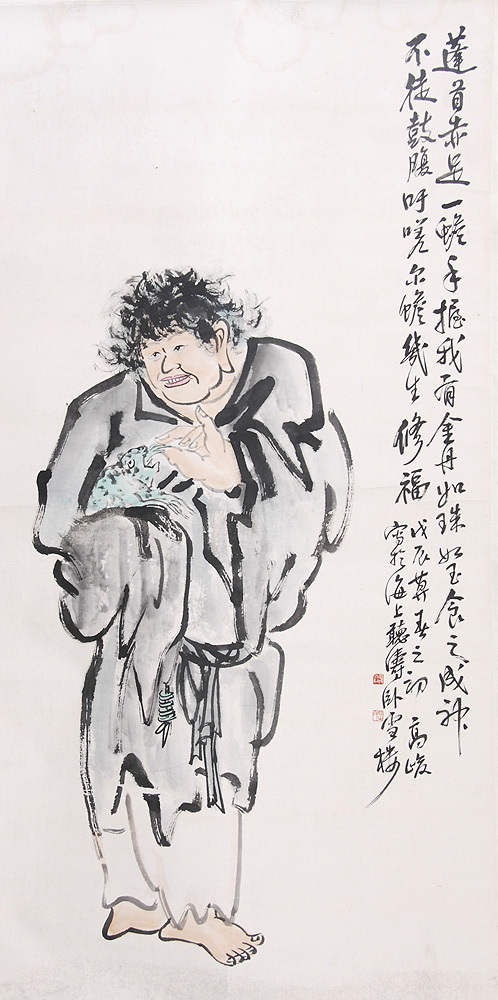 蓬首赤足一蟾手握我有金丹如珠如玉食之成神
不徒鼓腹吁嗟尔蟾几生修福
戊辰莫春之初 高峻
写于海上听涛卧雪楼